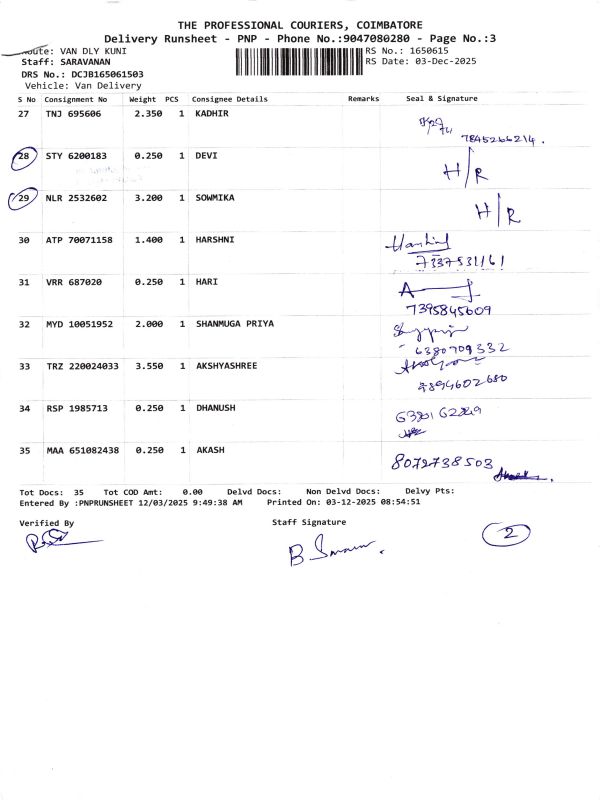 THE PROFESSIONAL COURIERS, COIMBATORE
Delivery Runsheet - PNP - Phone No.:9047080280 - Page No.:3
Route: VAN DLY KUNI RS No.: 1650615
Staff: SARAVANAN RS Date: 03-Dec-2025
DRS No.: DCJB165061503
Vehicle: Van Delivery
S No Consignment No Weight PCS Consignee Details Remarks Seal & Signature
27 TNJ 695606 2.350 1 KADHIR
7845266214.
28 STY 6200183 0.250 1 DEVI H/R
29 NLR 2532602 3.200 1 SOWMIKA H/R
30 ATP 70071158 1.400 1 HARSHNI
7337531161
31 VRR 687020 0.250 1 HARI
7395845609
32 MYD 10051952 2.000 1 SHANMUGA PRIYA
6380709332
33 TRZ 220024033 3.550 1 AKSHYASHREE
9894602680
34 RSP 1985713 0.250 1 DHANUSH
35 MAA 651082438 0.250 1 AKASH
8072738503
Tot Docs: 35 Tot COD Amt: 0.00 Delvd Docs: Non Delvd Docs: Delvy Pts:
Entered By :PNPRUNSHEET 12/03/2025 9:49:38 AM Printed On: 03-12-2025 08:54:51
Verified By Staff Signature
2